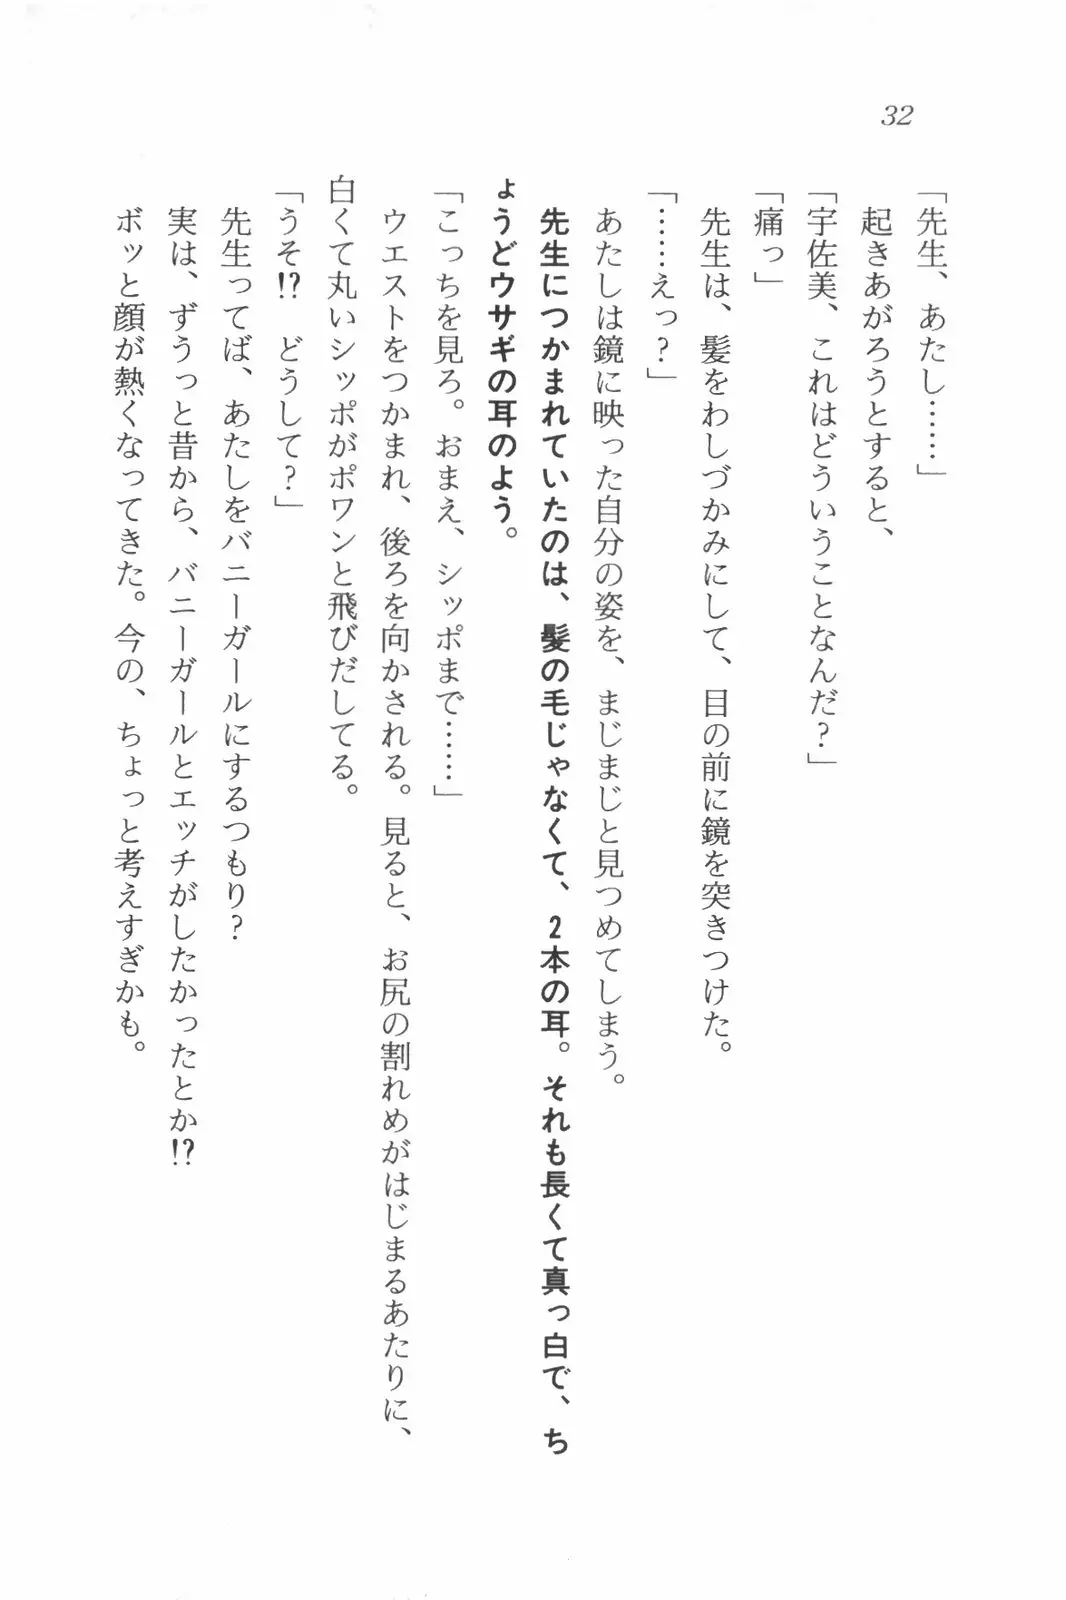 32
「先生、あたし……」
起きあがろうとすると、
「宇佐美、これはどういうことなんだ?」
「痛っ」
先生は、髪をわしづかみにして、目の前に鏡を突きつけた。
「……えっ?」
あたしは鏡に映った自分の姿を、まじまじと見つめてしまう。
先生につかまれていたのは、髪の毛じゃなくて、2本の耳。それも長くて真っ白で、ち
ょうどウサギの耳のよう。
「こっちを見ろ。おまえ、シッポまで……」
ウエストをつかまれ、後ろを向かされる。見ると、お尻の割れめがはじまるあたりに、
白くて丸いシッポがポワンと飛びだしてる。
「うそ!? どうして?」
先生ってば、あたしをバニーガールにするつもり?
実は、ずうっと昔から、バニーガールとエッチがしたかったとか!?
ボッと顔が熱くなってきた。今の、ちょっと考えすぎかも。